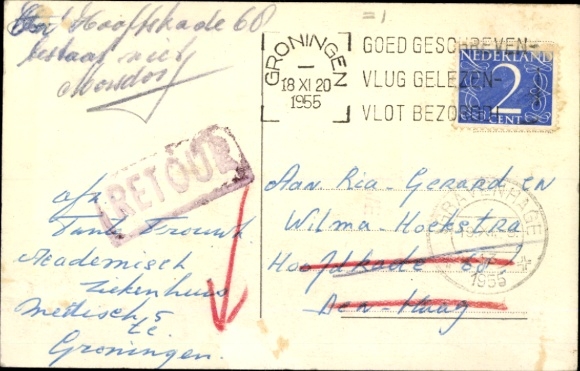 Hooftskade 68
bestaat niet
GRONINGEN
18 XI 20
1955
GOED GESCHREVEN-
VLUG GELEZEN-
VLOT BEZORGD!
NEDERLAND
2
CENT
RETOUR
afz
Tante Trouwk
Academisch
Ziekenhuis
Medisch 5
Groningen.
Aan Ria-Gerard en
Wilma-Hoekstra
Hoofdkade 68
Den-Haag
'S GRAVENHAGE
1955